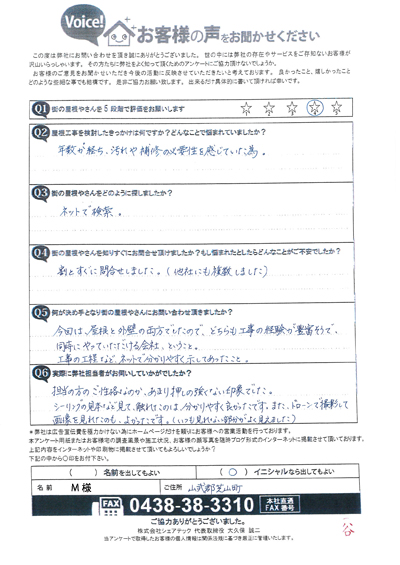 Voice!
お客様の声をお聞かせください
この度は弊社にお問い合わせを頂き誠にありがとうございました。世の中には弊社の存在やサービスをご存知ないお客様が
沢山いらっしゃいます。その方たちに弊社をよく知って頂くためのアンケートにご協力頂けないでしょうか。
お客様のご意見をお聞かせいただき今後の活動に反映させていただきたいと考えております。良かったこと、嬉しかったこと
どのような些細な事でも結構です。是非ご協力お願い致します。出来るだけ具体的に書いて頂ければ幸いです。
Q1 街の屋根やさんを5段階で評価をお願いします ☆ ☆ ☆ ☆ ☆
Q2 屋根工事を検討したきっかけは何ですか?どんなことで悩まれていましたか?
年数が経ち、汚れや補修の必要性を感じていた為。
Q3 街の屋根やさんをどのように探しましたか?
ネットで検索。
Q4 街の屋根やさんを知りすぐにお問合せ頂けますか?もし悩まれたとしたらどんなことがご不安でしたか?
割とすぐに問合せしました。(他社にも複数しました)
Q5 何が決め手となり街の屋根やさんにお問い合わせ頂けましたか?
今回は、屋根と外壁の両方でしたので、どちらも工事の経験が豊富そうで、
同時にやっていただける会社、ということ。
工事の工程など、ネットで分かりやすく示してあったこと。
Q6 実際に弊社担当者がお伺いしていかがでしたか?
担当の方のご性格なのか、あまり押しの強くない印象でした。
シーリングの見本など見て、触れたのは、分かりやすく良かったです。また、ドローンで撮影して
画像を見れたのも、よかったです。(いつも見れない部分がよく見えました)
*弊社は広告宣伝費を極力かけない為にホームページだけを頼りにお客様への営業活動を行っております。
本アンケート用紙またはお客様宅の調査風景や施工状況、お客様の顔写真を随時ブログ形式のインターネットに掲載させて頂いております。
上記内容をインターネットや印刷物に掲載させて頂いてもよろしいでしょうか?
下記の中から○印をお付下さい。
( )名前を出してもよい (○)イニシャルなら出してもよい
名前 M様 ご住所 山武郡芝山町
FAX 0438-38-3310 本社直通 FAX番号
ご協力ありがとうございました。
株式会社シェアテック 代表取締役 大久保 誠二
当アンケートで取得したお客様の個人情報は関係法規に基づき厳正に管理いたします。
谷